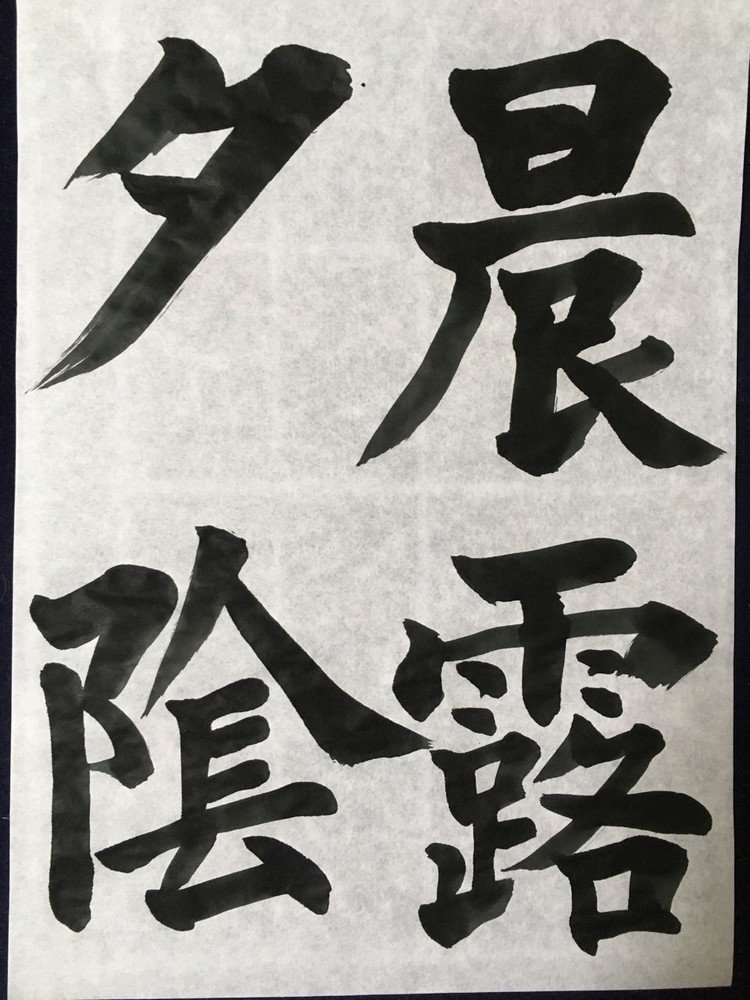 晨露
夕陰